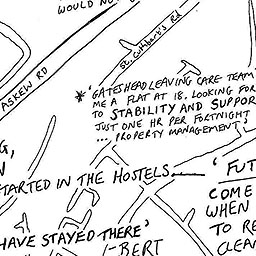 WOULD NO
St. Cuthbert's Rd
ASKEW RD
* 'GATESHEAD LEAVING CARE TEAM
ME A FLAT AT 18. LOOKING FOR
TO STABILITY AND SUPPOR
JUST ONE HR PER FORTNIGHT
... PROPERTY MANAGEMENT'
G,
N
STARTED IN THE HOSTELS.
'FUT
COME
WHEN
TO RE
CLEAN
HAVE STAYED THERE'
-BERT